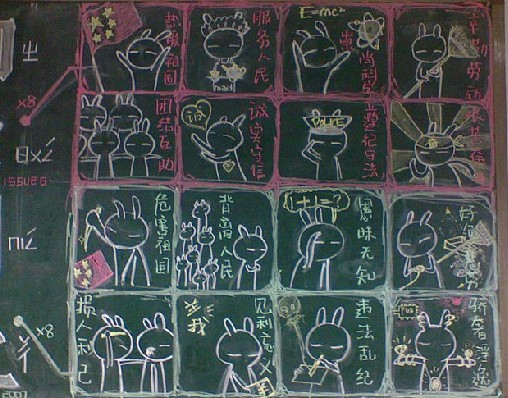 热爱祖国
服务人民
E=mc²
崇尚科学
辛勤劳动
x8
团结互助
诚
诚实守信
POLICE
遵纪守法
ISSUES
危害祖国
背离人民
1+1=?
愚昧无知
x8
损人利己
我
见利忘义
违法乱纪
骄奢淫逸
2007